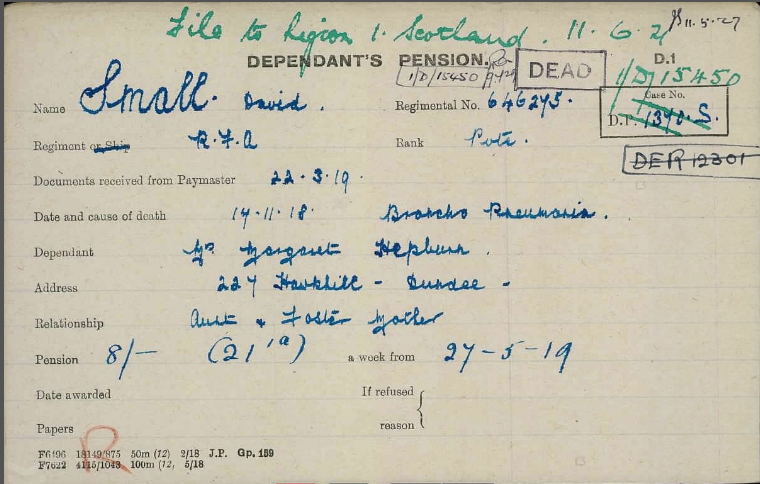 File to Region 1. Scotland. 11.6.2
11-5-27
DEPENDANT'S PENSION.
1/D/15450
DEAD
D.1
1/D/15450
Name Small. David. Regimental No. 646275.
Case No.
D.P. 1390. S.
Regiment or Ship R.F.A Rank Pvte.
DER 12301
Documents received from Paymaster 22.3.19.
Date and cause of death 14.11.18. Broncho Pneumonia.
Dependant Mrs Margaret Hepburn.
Address 227 Hawkhill - Dundee -
Relationship Aunt & Foster Mother
Pension 8/- (21'a) a week from 27-5-19
Date awarded If refused
Papers reason
R
F6496 18149/875 50m (12) 2/18 J.P. Gp. 159
F7622 4115/1043 100m (12, 5/18